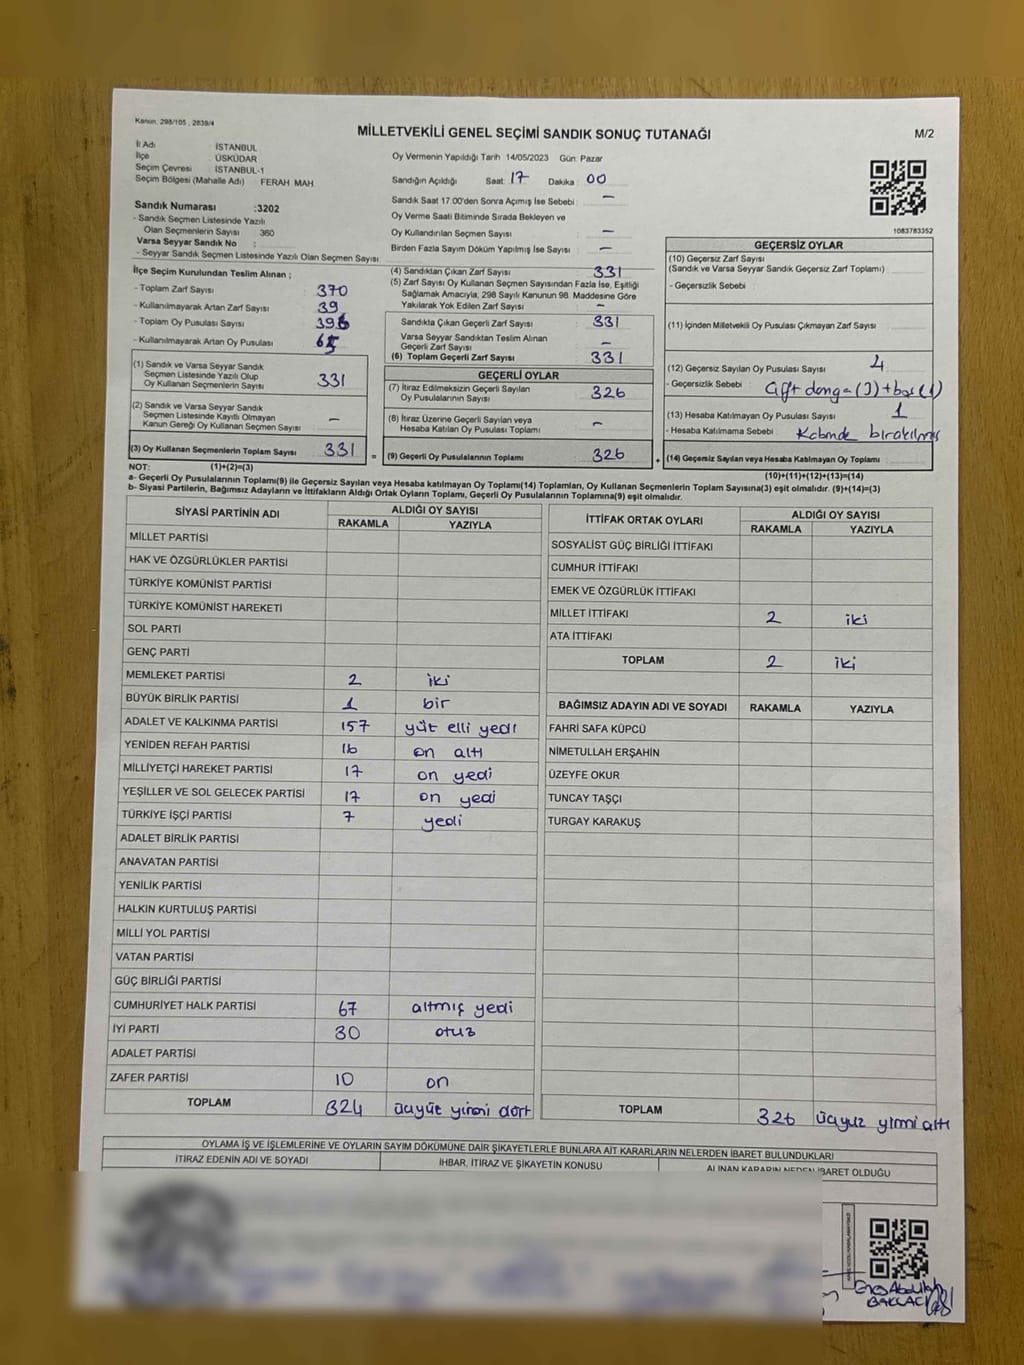 Kanun, 298/105 , 2839/4
MİLLETVEKİLİ GENEL SEÇİMİ SANDIK SONUÇ TUTANAĞI
M/2
İl Adı İSTANBUL
İlçe : ÜSKÜDAR
Seçim Çevresi : İSTANBUL-1
Seçim Bölgesi (Mahalle Adı) FERAH MAH.
Oy Vermenin Yapıldığı Tarih 14/05/2023 Gün: Pazar
Sandığın Açıldığı Saat: 17 Dakika 00
Sandık Saat 17.00'den Sonra Açımış İse Sebebi : –
Oy Verme Saati Bitiminde Sırada Bekleyen ve
Oy Kullandırılan Seçmen Sayısı : –
Birden Fazla Sayım Döküm Yapılmış İse Sayısı : –
1083783352
Sandık Numarası :3202
- Sandık Seçmen Listesinde Yazılı
Olan Seçmenlerin Sayısı : 360
Varsa Seyyar Sandık No :
- Seyyar Sandık Seçmen Listesinde Yazılı Olan Seçmen Sayısı:
İlçe Seçim Kurulundan Teslim Alınan ;
- Toplam Zarf Sayısı : 370
- Kullanılmayarak Artan Zarf Sayısı : 39
- Toplam Oy Pusulası Sayısı : 396
- Kullanılmayarak Artan Oy Pusulası : 65
(1) Sandık ve Varsa Seyyar Sandık
Seçmen Listesinde Yazılı Olup
Oy Kullanan Seçmenlerin Sayısı : 331
(2) Sandık ve Varsa Seyyar Sandık
Seçmen Listesinde Kayıtlı Olmayan
Kanun Gereği Oy Kullanan Seçmen Sayısı : –
(3) Oy Kullanan Seçmenlerin Toplam Sayısı : 331 =
(4) Sandıktan Çıkan Zarf Sayısı : 331
(5) Zarf Sayısı Oy Kullanan Seçmen Sayısından Fazla İse, Eşitliği
Sağlamak Amacıyla, 298 Sayılı Kanunun 98. Maddesine Göre
Yakılarak Yok Edilen Zarf Sayısı : –
Sandıkta Çıkan Geçerli Zarf Sayısı : 331
Varsa Seyyar Sandıktan Teslim Alınan
Geçerli Zarf Sayısı : –
(6) Toplam Geçerli Zarf Sayısı : 331
GEÇERLİ OYLAR
(7) İtiraz Edilmeksizin Geçerli Sayılan
Oy Pusulalarının Sayısı : 326
(8) İtiraz Üzerine Geçerli Sayılan veya
Hesaba Katılan Oy Pusulası Toplamı : –
(9) Geçerli Oy Pusulalarının Toplamı : 326 +
GEÇERSİZ OYLAR
(10) Geçersiz Zarf Sayısı
(Sandık ve Varsa Seyyar Sandık Geçersiz Zarf Toplamı) :
- Geçersizlik Sebebi :
(11) İçinden Milletvekili Oy Pusulası Çıkmayan Zarf Sayısı :
(12) Geçersiz Sayılan Oy Pusulası Sayısı : 4
- Geçersizlik Sebebi : (3) + (1)
(13) Hesaba Katılmayan Oy Pusulası Sayısı : 1
- Hesaba Katılmama Sebebi : Kabinde bırakılmış
(14) Geçersiz Sayılan veya Hesaba Katılmayan Oy Pusulası Toplamı :
NOT: (1)+(2)=(3) (10)+(11)+(12)+(13)=(14)
a- Geçerli Oy Pusulalarının Toplamı(9) ile Geçersiz Sayılan veya Hesaba katılmayan Oy Toplamı(14) Toplamları, Oy Kullanan Seçmenlerin Toplam Sayısına(3) eşit olmalıdır. (9)+(14)=(3)
b- Siyasi Partilerin, Bağımsız Adayların ve İttifakların Aldığı Ortak Oyların Toplamı, Geçerli Oy Pusulalarının Toplamına(9) eşit olmalıdır.
SİYASİ PARTİNİN ADI ALDIĞI OY SAYISI
RAKAMLA YAZIYLA
MİLLET PARTİSİ
HAK VE ÖZGÜRLÜKLER PARTİSİ
TÜRKİYE KOMÜNİST PARTİSİ
TÜRKİYE KOMÜNİST HAREKETİ
SOL PARTİ
GENÇ PARTİ
MEMLEKET PARTİSİ 2 iki
BÜYÜK BİRLİK PARTİSİ 1 bir
ADALET VE KALKINMA PARTİSİ 157 yüz elli yedi
YENİDEN REFAH PARTİSİ 16 on altı
MİLLİYETÇİ HAREKET PARTİSİ 17 on yedi
YEŞİLLER VE SOL GELECEK PARTİSİ 17 on yedi
TÜRKİYE İŞÇİ PARTİSİ 7 yedi
ADALET BİRLİK PARTİSİ
ANAVATAN PARTİSİ
YENİLİK PARTİSİ
HALKIN KURTULUŞ PARTİSİ
MİLLİ YOL PARTİSİ
VATAN PARTİSİ
GÜÇ BİRLİĞİ PARTİSİ
CUMHURİYET HALK PARTİSİ 67 altmış yedi
İYİ PARTİ 30 otuz
ADALET PARTİSİ
ZAFER PARTİSİ 10 on
TOPLAM 324 üçyüz yirmi dört
İTTİFAK ORTAK OYLARI ALDIĞI OY SAYISI
RAKAMLA YAZIYLA
SOSYALİST GÜÇ BİRLİĞİ İTTİFAKI
CUMHUR İTTİFAKI
EMEK VE ÖZGÜRLÜK İTTİFAKI
MİLLET İTTİFAKI 2 iki
ATA İTTİFAKI
TOPLAM 2 iki
BAĞIMSIZ ADAYIN ADI VE SOYADI RAKAMLA YAZIYLA
FAHRİ SAFA KÜPCÜ
NİMETULLAH ERŞAHİN
ÜZEYFE OKUR
TUNCAY TAŞÇI
TURGAY KARAKUŞ
TOPLAM 326 üçyüz yirmi altı
OYLAMA İŞ VE İŞLEMLERİNE VE OYLARIN SAYIM DÖKÜMÜNE DAİR ŞİKAYETLERLE BUNLARA AİT KARARLARIN NELERDEN İBARET BULUNDUKLARI
İTİRAZ EDENİN ADI VE SOYADI İHBAR, İTİRAZ VE ŞİKAYETİN KONUSU ALINAN KARARIN NEDEN İBARET OLDUĞU